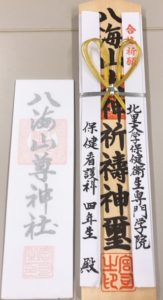 合格祈願
八海山 祈祷神璽
北里大学保健衛生専門学院
保健看護科 四年生 殿
八海山尊神社